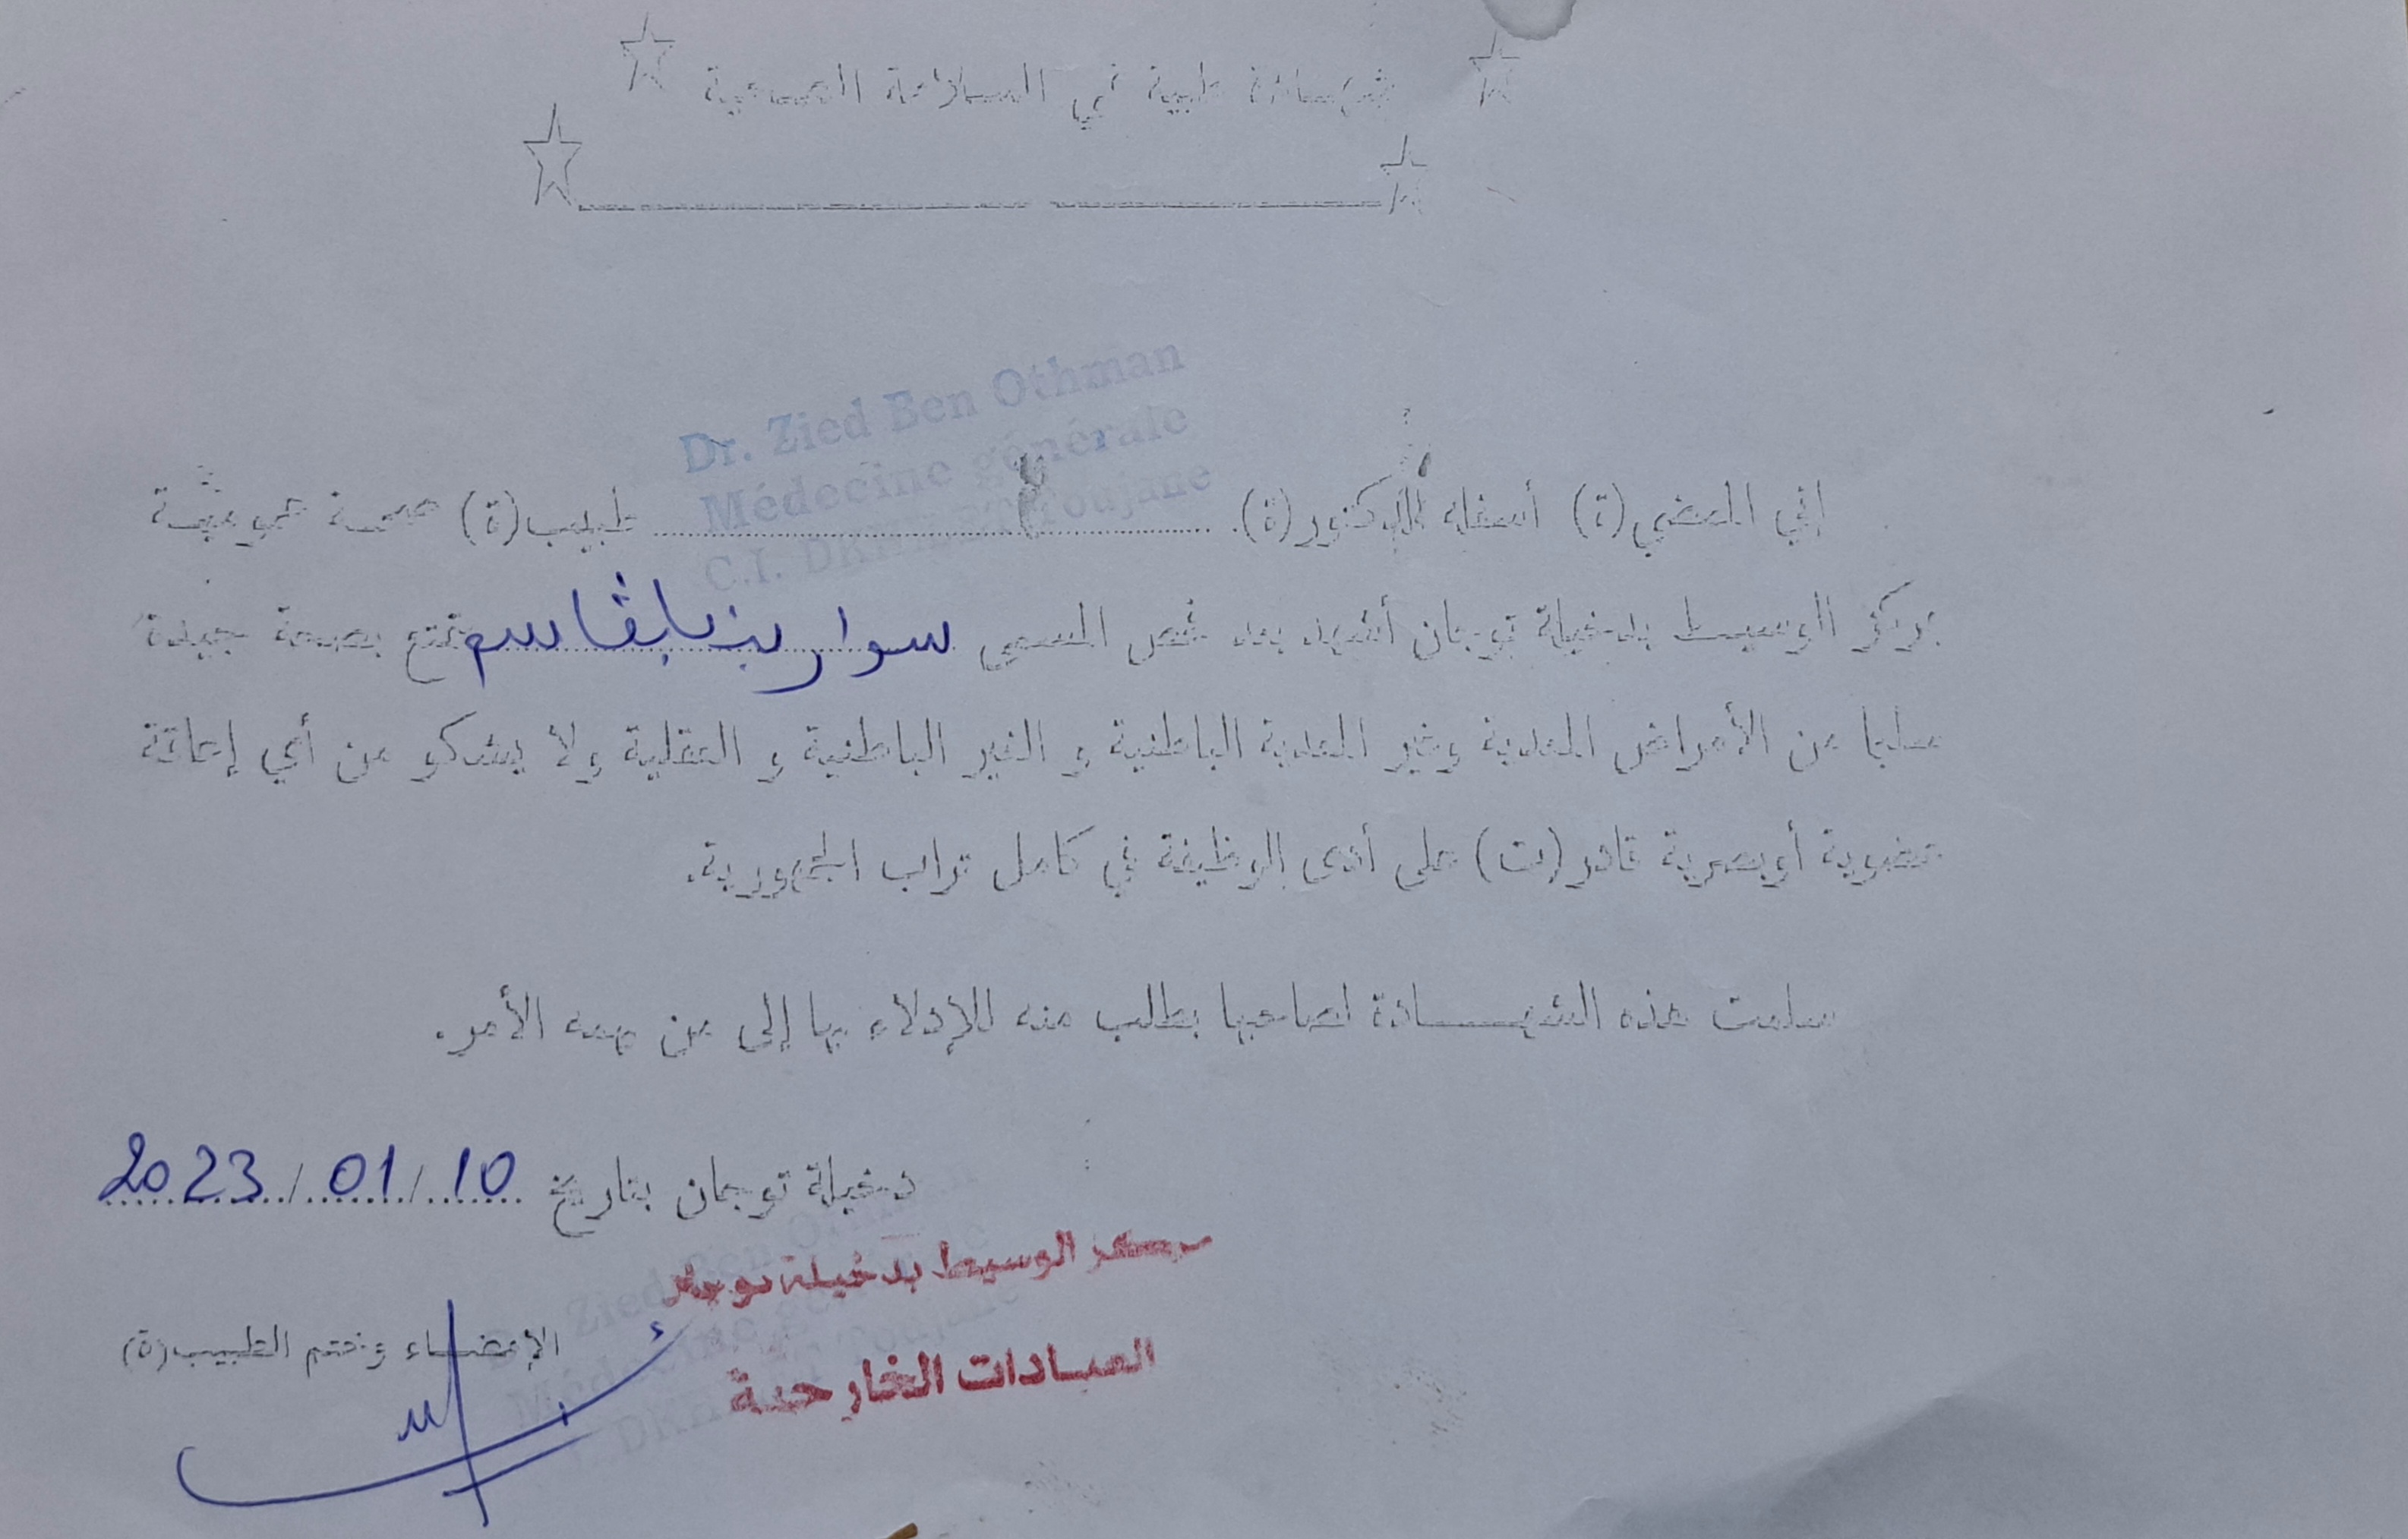 شهادة طبية في السلامة الصحية
Dr. Zied Ben Othman
Médecine générale
C.I. Toujane
اني الممضي(ة) أسفله الدكتور(ة). طبيب(ة) صحة عمومية
بمركز الوسيط بدخيلة توجان أشهد بعد فحص المسمى سوار بن بلڨاسم يتمتع بصحة جيدة
سليما من الأمراض المعدية وغير المعدية الباطنية و الغير الباطنية و العقلية ولا يشكو من أي إعاقة
عضوية أوبصرية قادر(ت) على أدى الوظيفة في كامل تراب الجمهورية.
سلمت هذه الشهـــــادة لصاحبها بطلب منه للإدلاء بها إلى من يهمه الأمر.
دخيلة توجان بتاريخ 10/01/2023
مركز الوسيط بدخيلة توجان
العيادات الخارجية
الإمضــاء وختم الطبيب(ة)
Zied Ben Othman
Médecine générale
Toujane